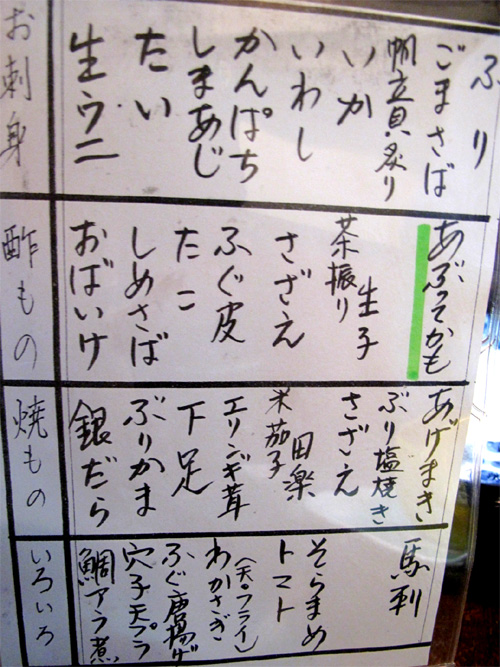 お刺身
ぶり
ごまさば
帆立貝炙り
いか
いわし
かんぱち
しまあじ
たい
生ウニ
酢もの
あぶってかも
生子
茶振り
さざえ
ふぐ皮
たこ
しめさば
おばいけ
焼もの
あげまき
ぶり塩焼き
さざえ
田楽
米茄子
エリンギ茸
下足
ぶりかま
銀だら
いろいろ
馬刺
そらまめ
トマト
(天・フライ)
わかさぎ
ふぐ唐揚げ
穴子天プラ
鯛アラ煮